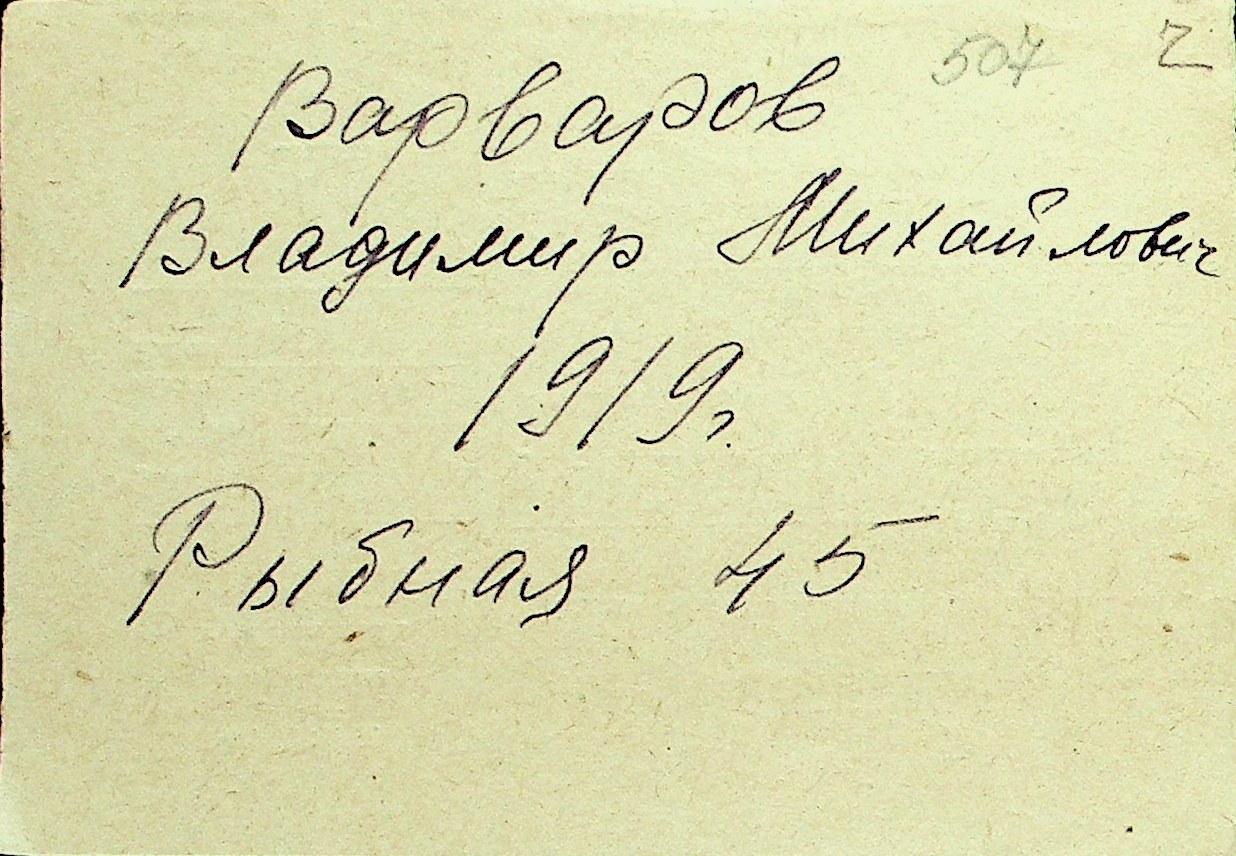 507
Варваров
Владимир Михайлович
1919г.
Рыбная 45